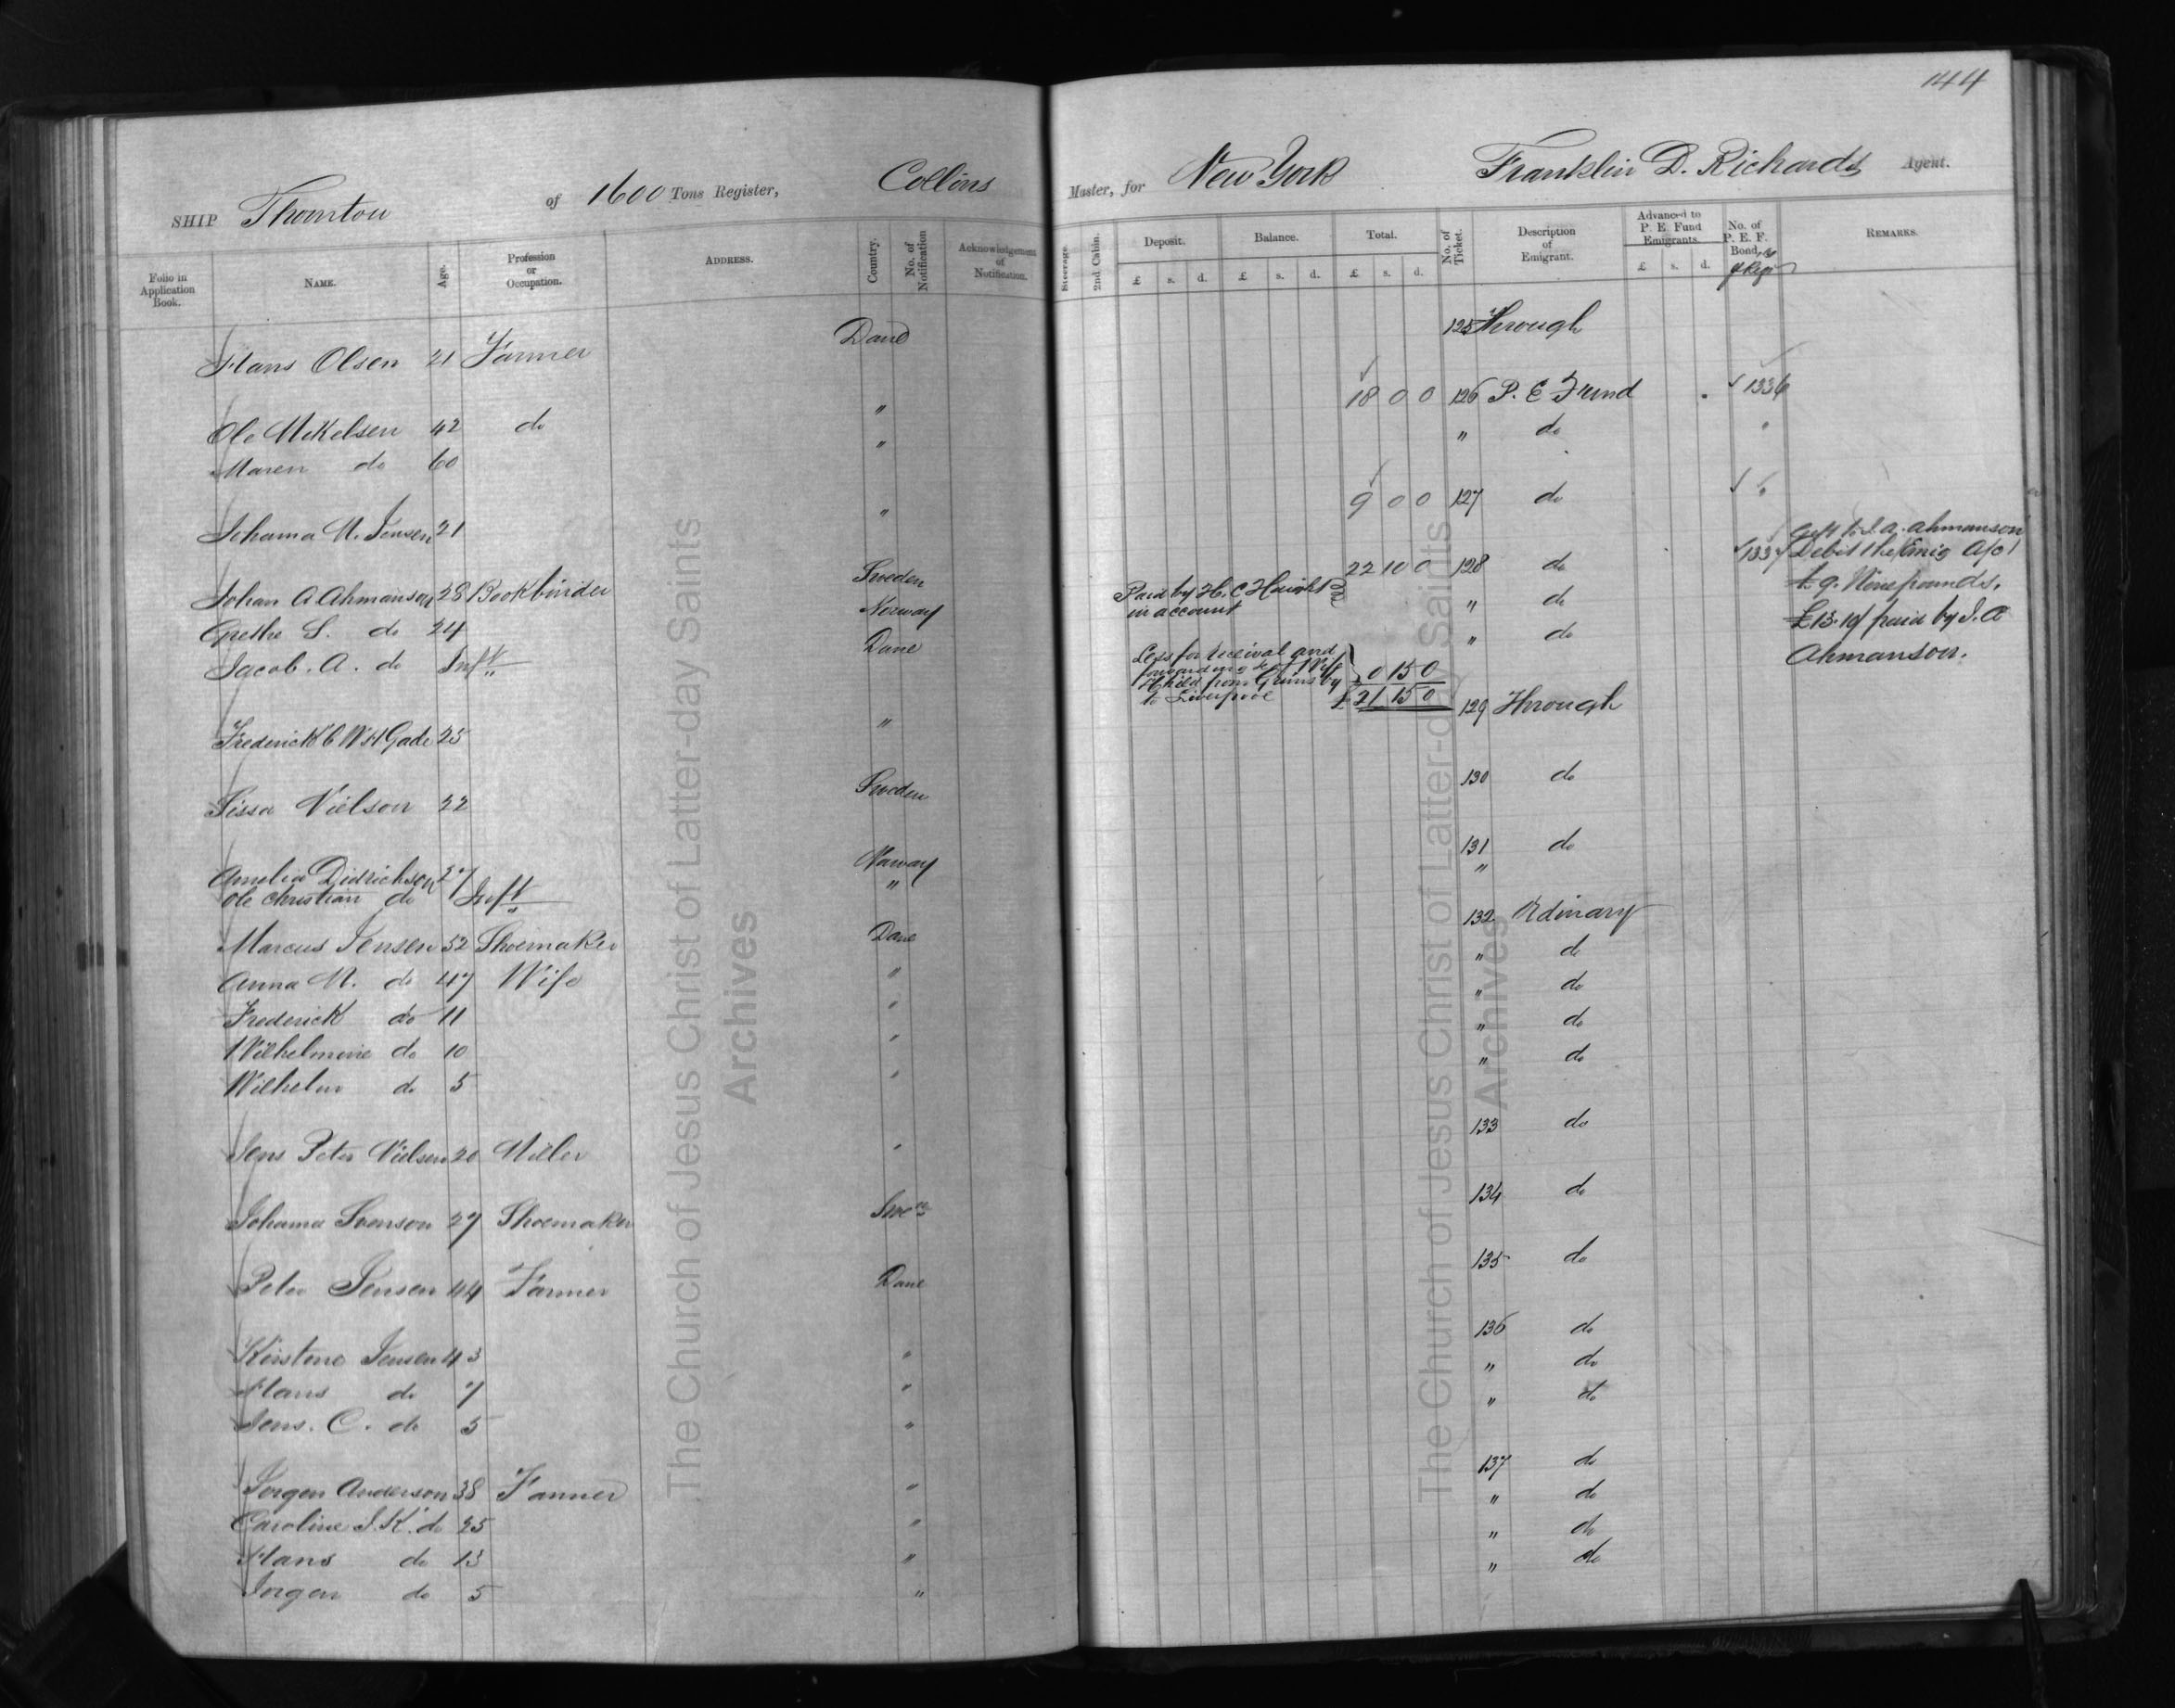 144
SHIP Thornton of 1600 Tons Register, Collins Master, for New York Franklin D. Richards Agent.
Folio in Application Book. NAME. Age. Profession or Occupation. ADDRESS. Country. No. of Notification Acknowledgement of Notification. Steerage. 2nd Cabin. Deposit. £ s. d. Balance. £ s. d. Total. £ s. d. No. of Ticket. Description of Emigrant. Advanced to P. E. Fund Emigrants. £ s. d. No. of P. E. F. Bond, REMARKS.
Hans Olsen 21 Farmer Dane 125 Through
Ole Mikelsen 42 do " 18 0 0 126 P. E. Fund 1336
Maren do 60 " " do "
Johanna M. Jensen 21 " 9 0 0 127 do "
Johan A Ahmanson 28 Bookbinder Sweden 22 10 0 128 do 1337
Grethe S. do 24 Norway " do
Jacob. A. do Inft " Dane " do
Paid by H. C Haight
in account
Less for receival and
forwarding &c of Wife
& Child from Grimsby
to Liverpool
0 15 0
£ 21 15 0
Gift to J. A. Ahmanson
Debit the Emig a/c
£9. Nine pounds,
£13.10/ paid by J. A
Ahmanson.
Frederick C W H Gade 25 " 129 Through
Sissa Nielson 22 Sweden 130 do
Amelia Didrichson 27 Norway 131 do
Ole Christian do Inft " " "
Marcus Jensen 52 Shoemaker Dane 132 Ordinary
Anna M. do 47 Wife " " do
Frederick do 11 " " do
Wilhelmine do 10 " " do
Wilhelm do 5 " " do
Jens Peter Nielsen 20 Miller " 133 do
Johanna Svenson 27 Shoemaker Swe 134 do
Peter Jensen 44 Farmer Dane 135 do
Kirstine Jensen 43 " 136 do
Hans do 7 " " do
Jens. C. do 5 " " do
Jorgen Anderson 38 Farmer " 137 do
Caroline J. K. do 25 " " do
Hans do 13 " " do
Jorgen do 5 " " do
The Church of Jesus Christ of Latter-day Saints
Archives
The Church of Jesus Christ of Latter-day Saints
Archives